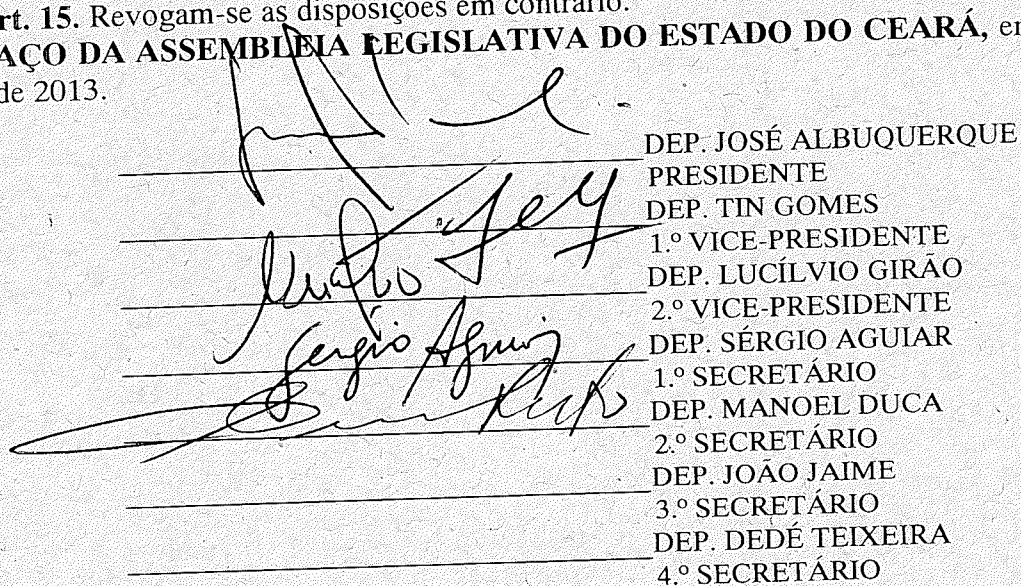 rt. 15. Revogam-se as disposições em contrário.
AÇO DA ASSEMBLEIA LEGISLATIVA DO ESTADO DO CEARÁ, em
de 2013.
DEP. JOSÉ ALBUQUERQUE
PRESIDENTE
DEP. TIN GOMES
1.º VICE-PRESIDENTE
DEP. LUCÍLVIO GIRÃO
2.º VICE-PRESIDENTE
Sérgio Aguiar
DEP. SÉRGIO AGUIAR
1.º SECRETÁRIO
DEP. MANOEL DUCA
2.º SECRETÁRIO
DEP. JOÃO JAIME
3.º SECRETÁRIO
DEP. DEDÉ TEIXEIRA
4.º SECRETÁRIO